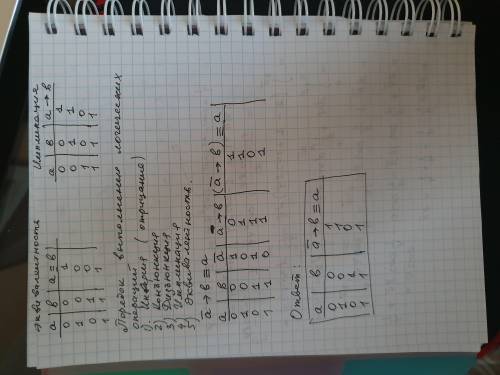 эквивалентность Импликация
a в a≡в a в a→в
0 0 1 0 0 1
1 0 0 0 1 1
0 1 0 1 0 0
1 1 1 1 1 1
Порядок выполнения логических
операций:
1) Инверсия (отрицание)
2) Конъюнкция
3) Дизъюнкция
4) Импликация
5) Эквивалентность.
ā→в≡a
a в ā ā→в (ā→в)≡a
0 0 1 0 1
1 0 0 1 1
0 1 1 1 0
1 1 0 1 1
Ответ:
a в ā→в≡a
0 0 1
1 0 1
0 1 0
1 1 1